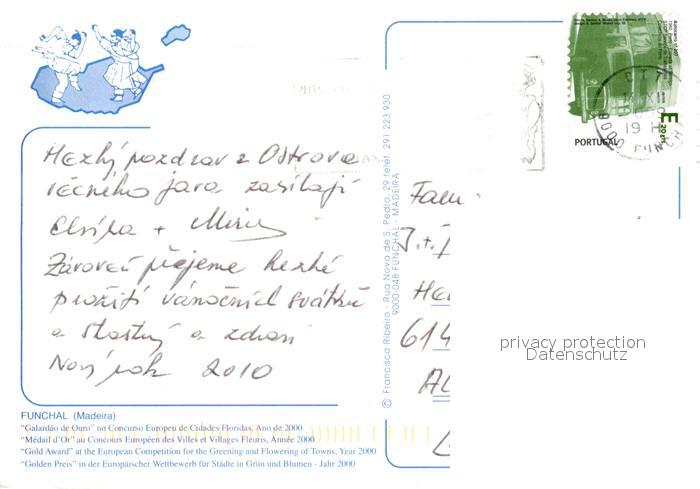 Hezký pozdrav z Ostrova
věčného jara zasílají
Elsika + Mirek
Zároveň přejeme hezké
prožití vánočních svátků
a šťastný a zdraví
Nový rok 2010
Fam
J.+J
614
AL
© Francisco Ribeiro - Rua Nova de S. Pedro, 29 telef. 291 223 930
9000-048 FUNCHAL - MADEIRA
E
20 gr.
PORTUGAL
19 H
9000 FUNCHAL
privacy protection
Datenschutz
FUNCHAL (Madeira)
"Galardão de Ouro" no Concurso Europeu de Cidades Floridas, Ano de 2000
"Médail d'Or" au Concours Européen des Villes et Villages Fleuris, Année 2000
"Gold Award" at the European Competition for the Greening and Flowering of Towns, Year 2000
"Golden Preis" in der Europäischer Wettbewerb für Städte in Grün und Blumen - Jahr 2000